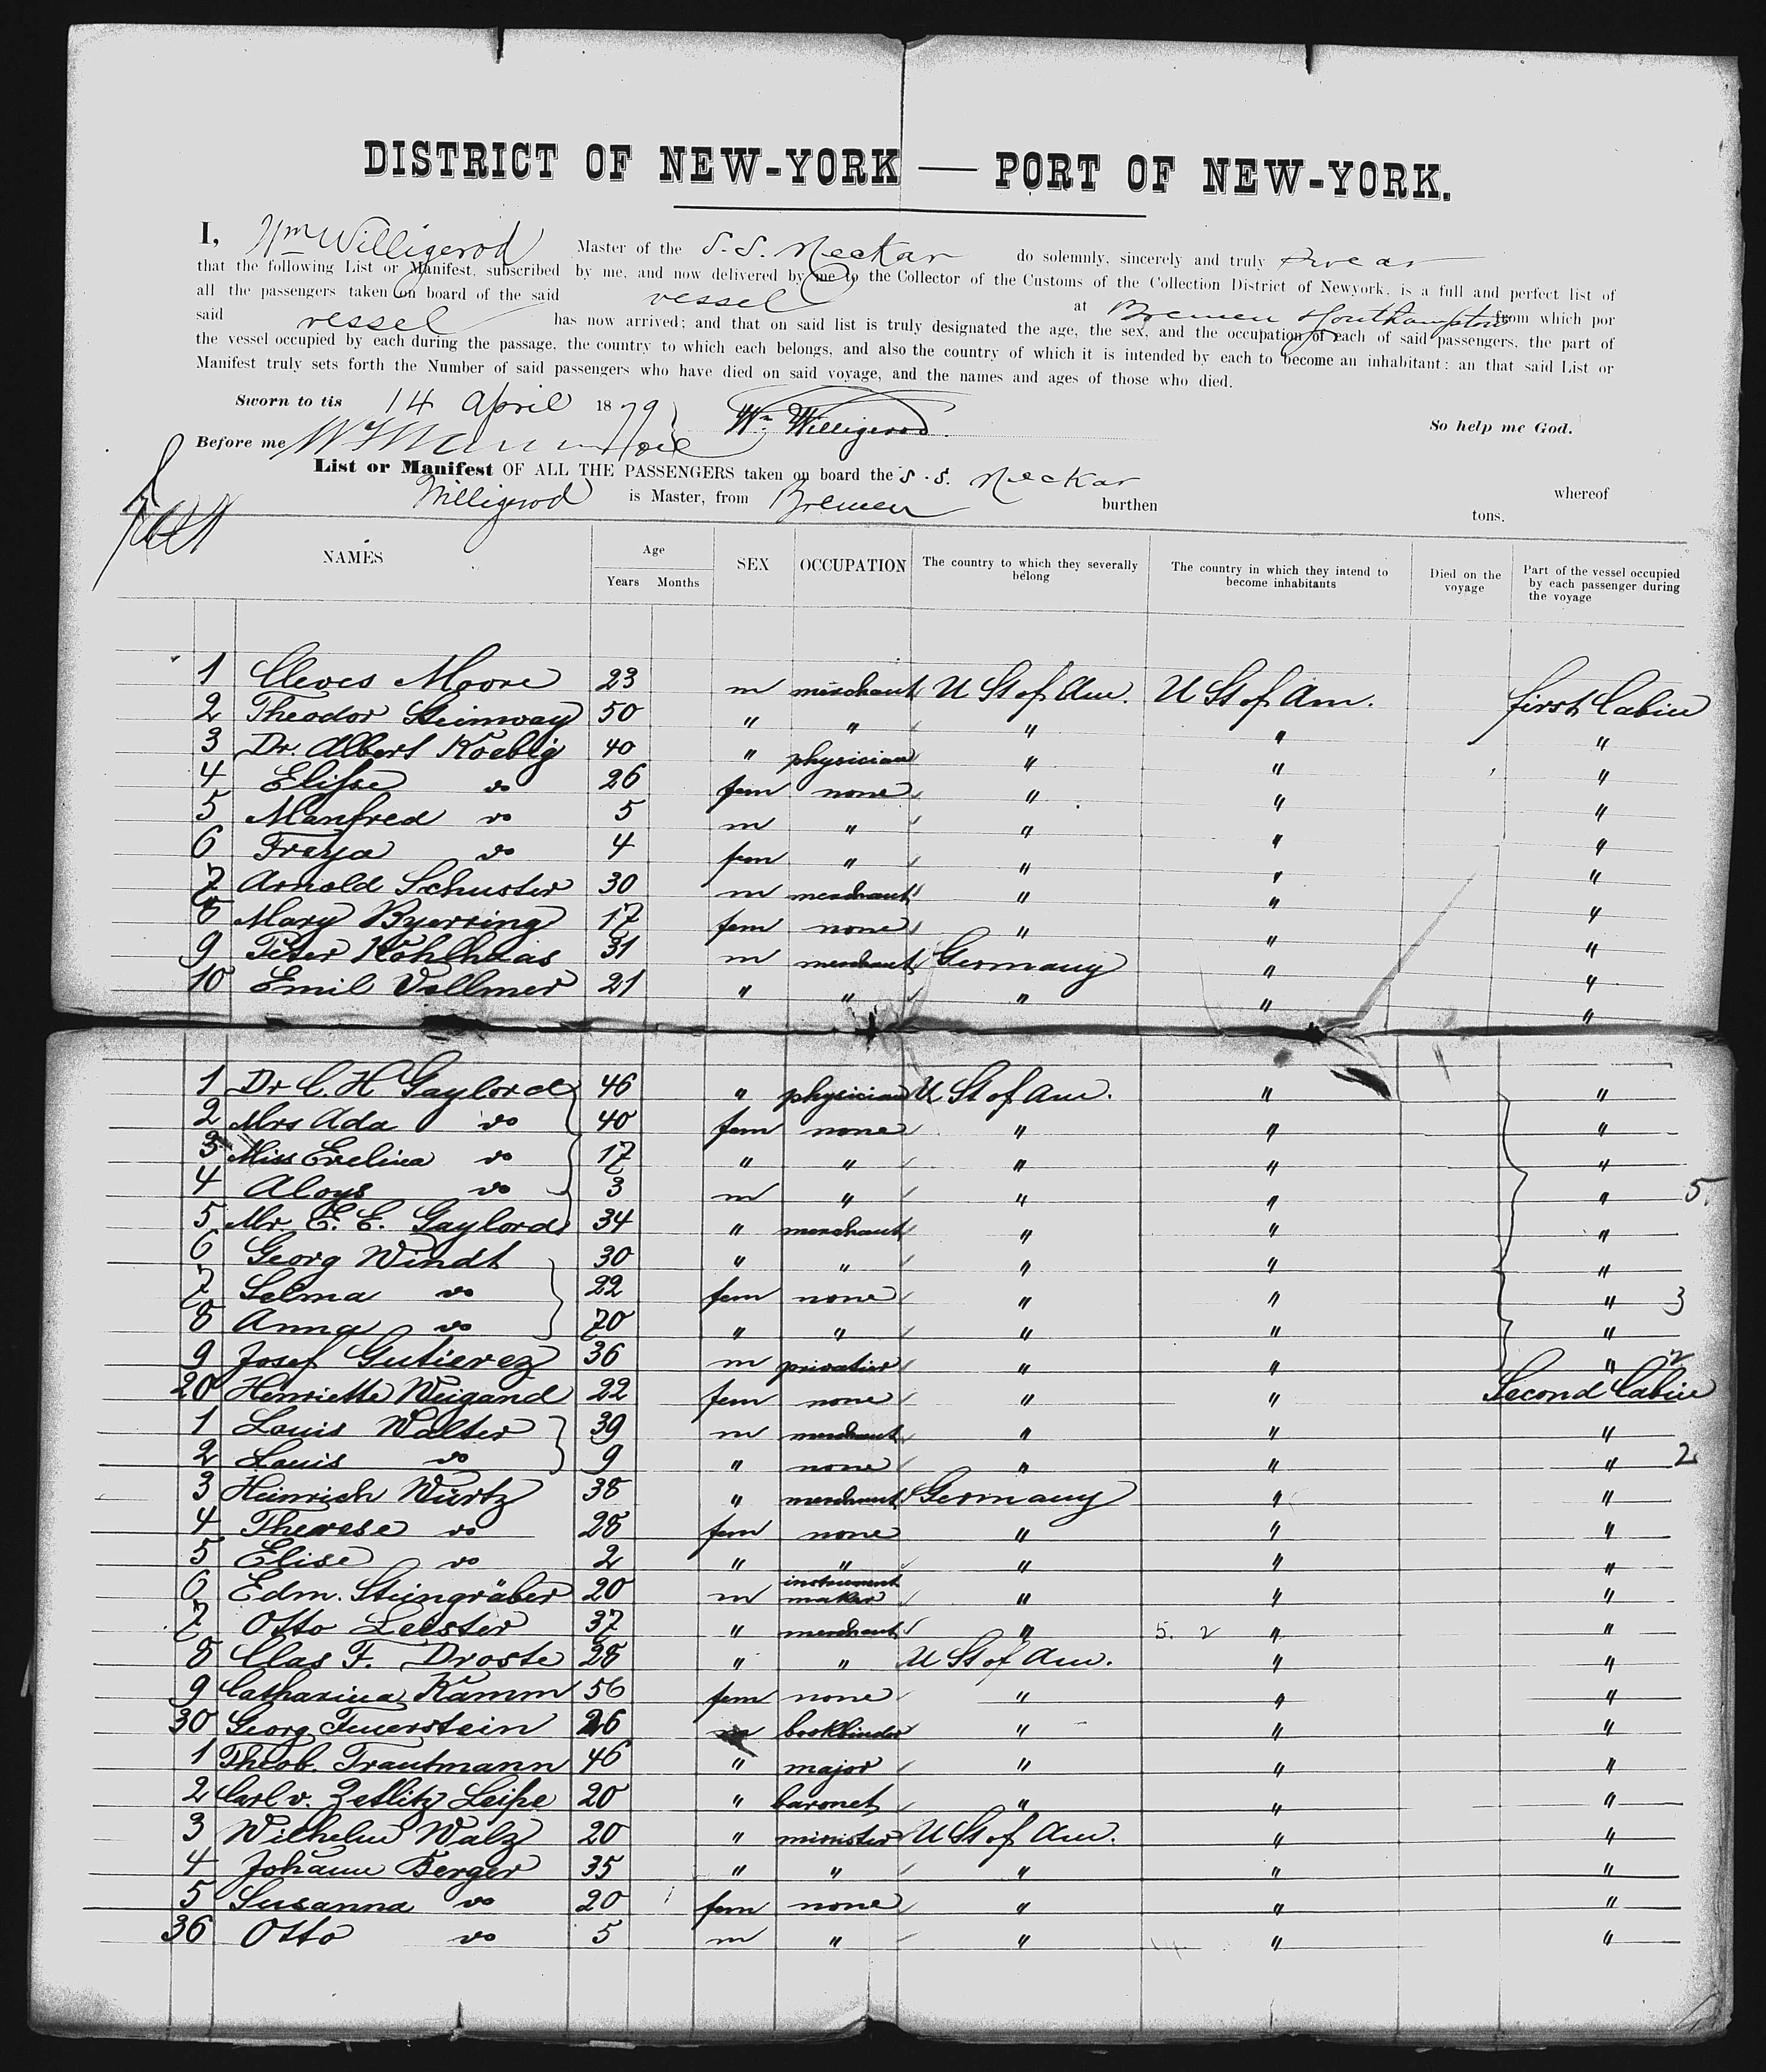 DISTRICT OF NEW-YORK — PORT OF NEW-YORK.
I, Wm Willigerod Master of the S.S. Neckar do solemnly, sincerely and truly swear
that the following List or Manifest, subscribed by me, and now delivered by me to the Collector of the Customs of the Collection District of Newyork, is a full and perfect list of
all the passengers taken on board of the said vessel at Bremen Southampton from which por
said vessel has now arrived; and that on said list is truly designated the age, the sex, and the occupation of each of said passengers, the part of
the vessel occupied by each during the passage, the country to which each belongs, and also the country of which it is intended by each to become an inhabitant: an that said List or
Manifest truly sets forth the Number of said passengers who have died on said voyage, and the names and ages of those who died.
Sworn to tis 14 April 1879 Wm Willigerod So help me God.
Before me
List or Manifest OF ALL THE PASSENGERS taken on board the S. S. Neckar whereof
Willigerod is Master, from Bremen burthen tons.
NAMES Age Years Months SEX OCCUPATION The country to which they severally belong The country in which they intend to become inhabitants Died on the voyage Part of the vessel occupied by each passenger during the voyage
1 Cleves Moore 23 m merchant U St of Am. U St of Am. first Cabin
2 Theodor Steinway 50 " " " " "
3 Dr. Albert Koebig 40 " physician " " "
4 Elisse do 26 fem none " " "
5 Manfred do 5 m " " " "
6 Freya do 4 fem " " " "
7 Arnold Schuster 30 m merchant " " "
8 Mary Byerring 17 fem none " " "
9 Peter Kohlhaas 31 m merchant Germany " "
10 Emil Vollmer 21 " " " " "
1 Dr C. H Gaylord 46 " physician U St of Am. " "
2 Mrs Ada do 40 fem none " " "
3 Miss Evelina do 17 " " " " "
4 Aloys do 3 m " " " " 5.
5 Mr. E. E. Gaylord 34 " merchant " " "
6 Georg Windt 30 " " " " "
7 Selma do 22 fem none " " " 3
8 Anna do 70 " " " " "
9 Josef Gutierez 36 m privatier " " " 2
20 Henriette Weigand 22 fem none " " Second Cabin
1 Louis Walter 39 m merchant " " "
2 Louis do 9 " none " " " 2
3 Heinrich Würtz 38 " merchant Germany " "
4 Therese do 28 fem none " " "
5 Elise do 2 " " " " "
6 Edm. Steingräber 20 m instrument maker " " "
7 Otto Leister 37 " merchant " 5. 2 " "
8 Clas F. Droste 28 " " U St of Am. " "
9 Catharina Kamm 56 fem none " " "
30 Georg Feuerstein 26 m bookbinder " " "
1 Theob. Trautmann 46 " major " " "
2 Carl v. Zetlitz Leipe 20 " baronet " " "
3 Wilhelm Walz 20 " minister U St of Am. " "
4 Johann Berger 35 " " " " "
5 Susanna do 20 fem none " " "
36 Otto do 5 m " " " "